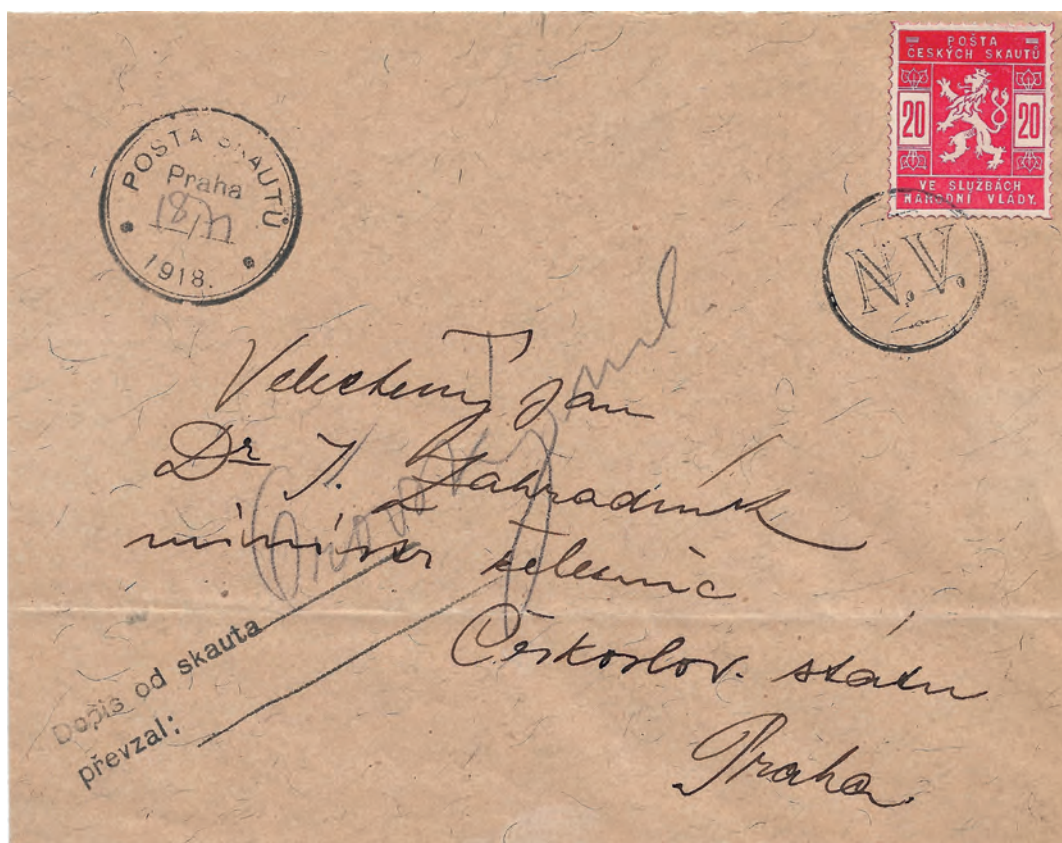 POŠTA
ČESKÝCH SKAUTŮ
20 20
VE SLUŽBÁCH
NÁRODNÍ VLÁDY.
POŠTA SKAUTŮ
Praha
1918.
N.V.
Velectěný Pan
Dr I. Zahradník
ministr železnic
Českoslov. státu
Praha
Dopis od skauta
převzal: